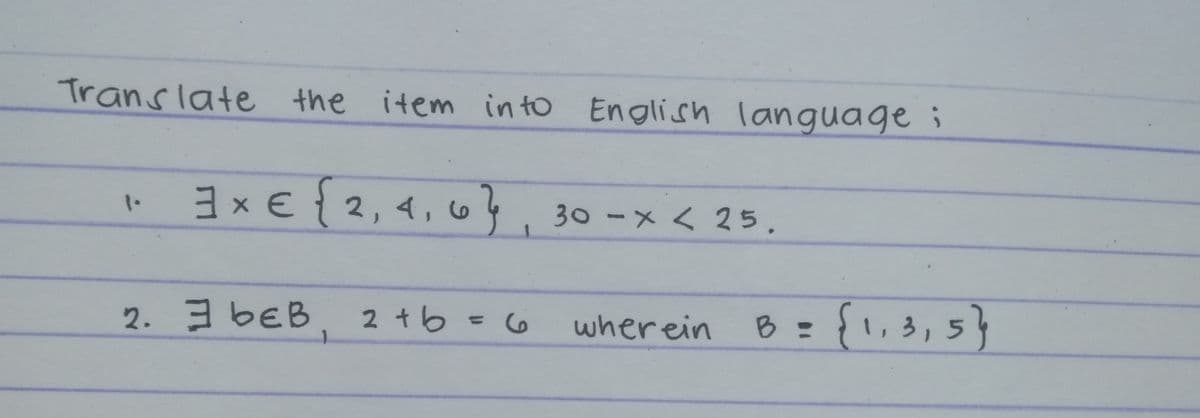 Translate the item into English language ;
1. ∃ x ∈ { 2, 4, 6 } , 30 - x < 25 .
2. ∃ b∈B , 2 + b = 6 wherein B = { 1, 3, 5 }